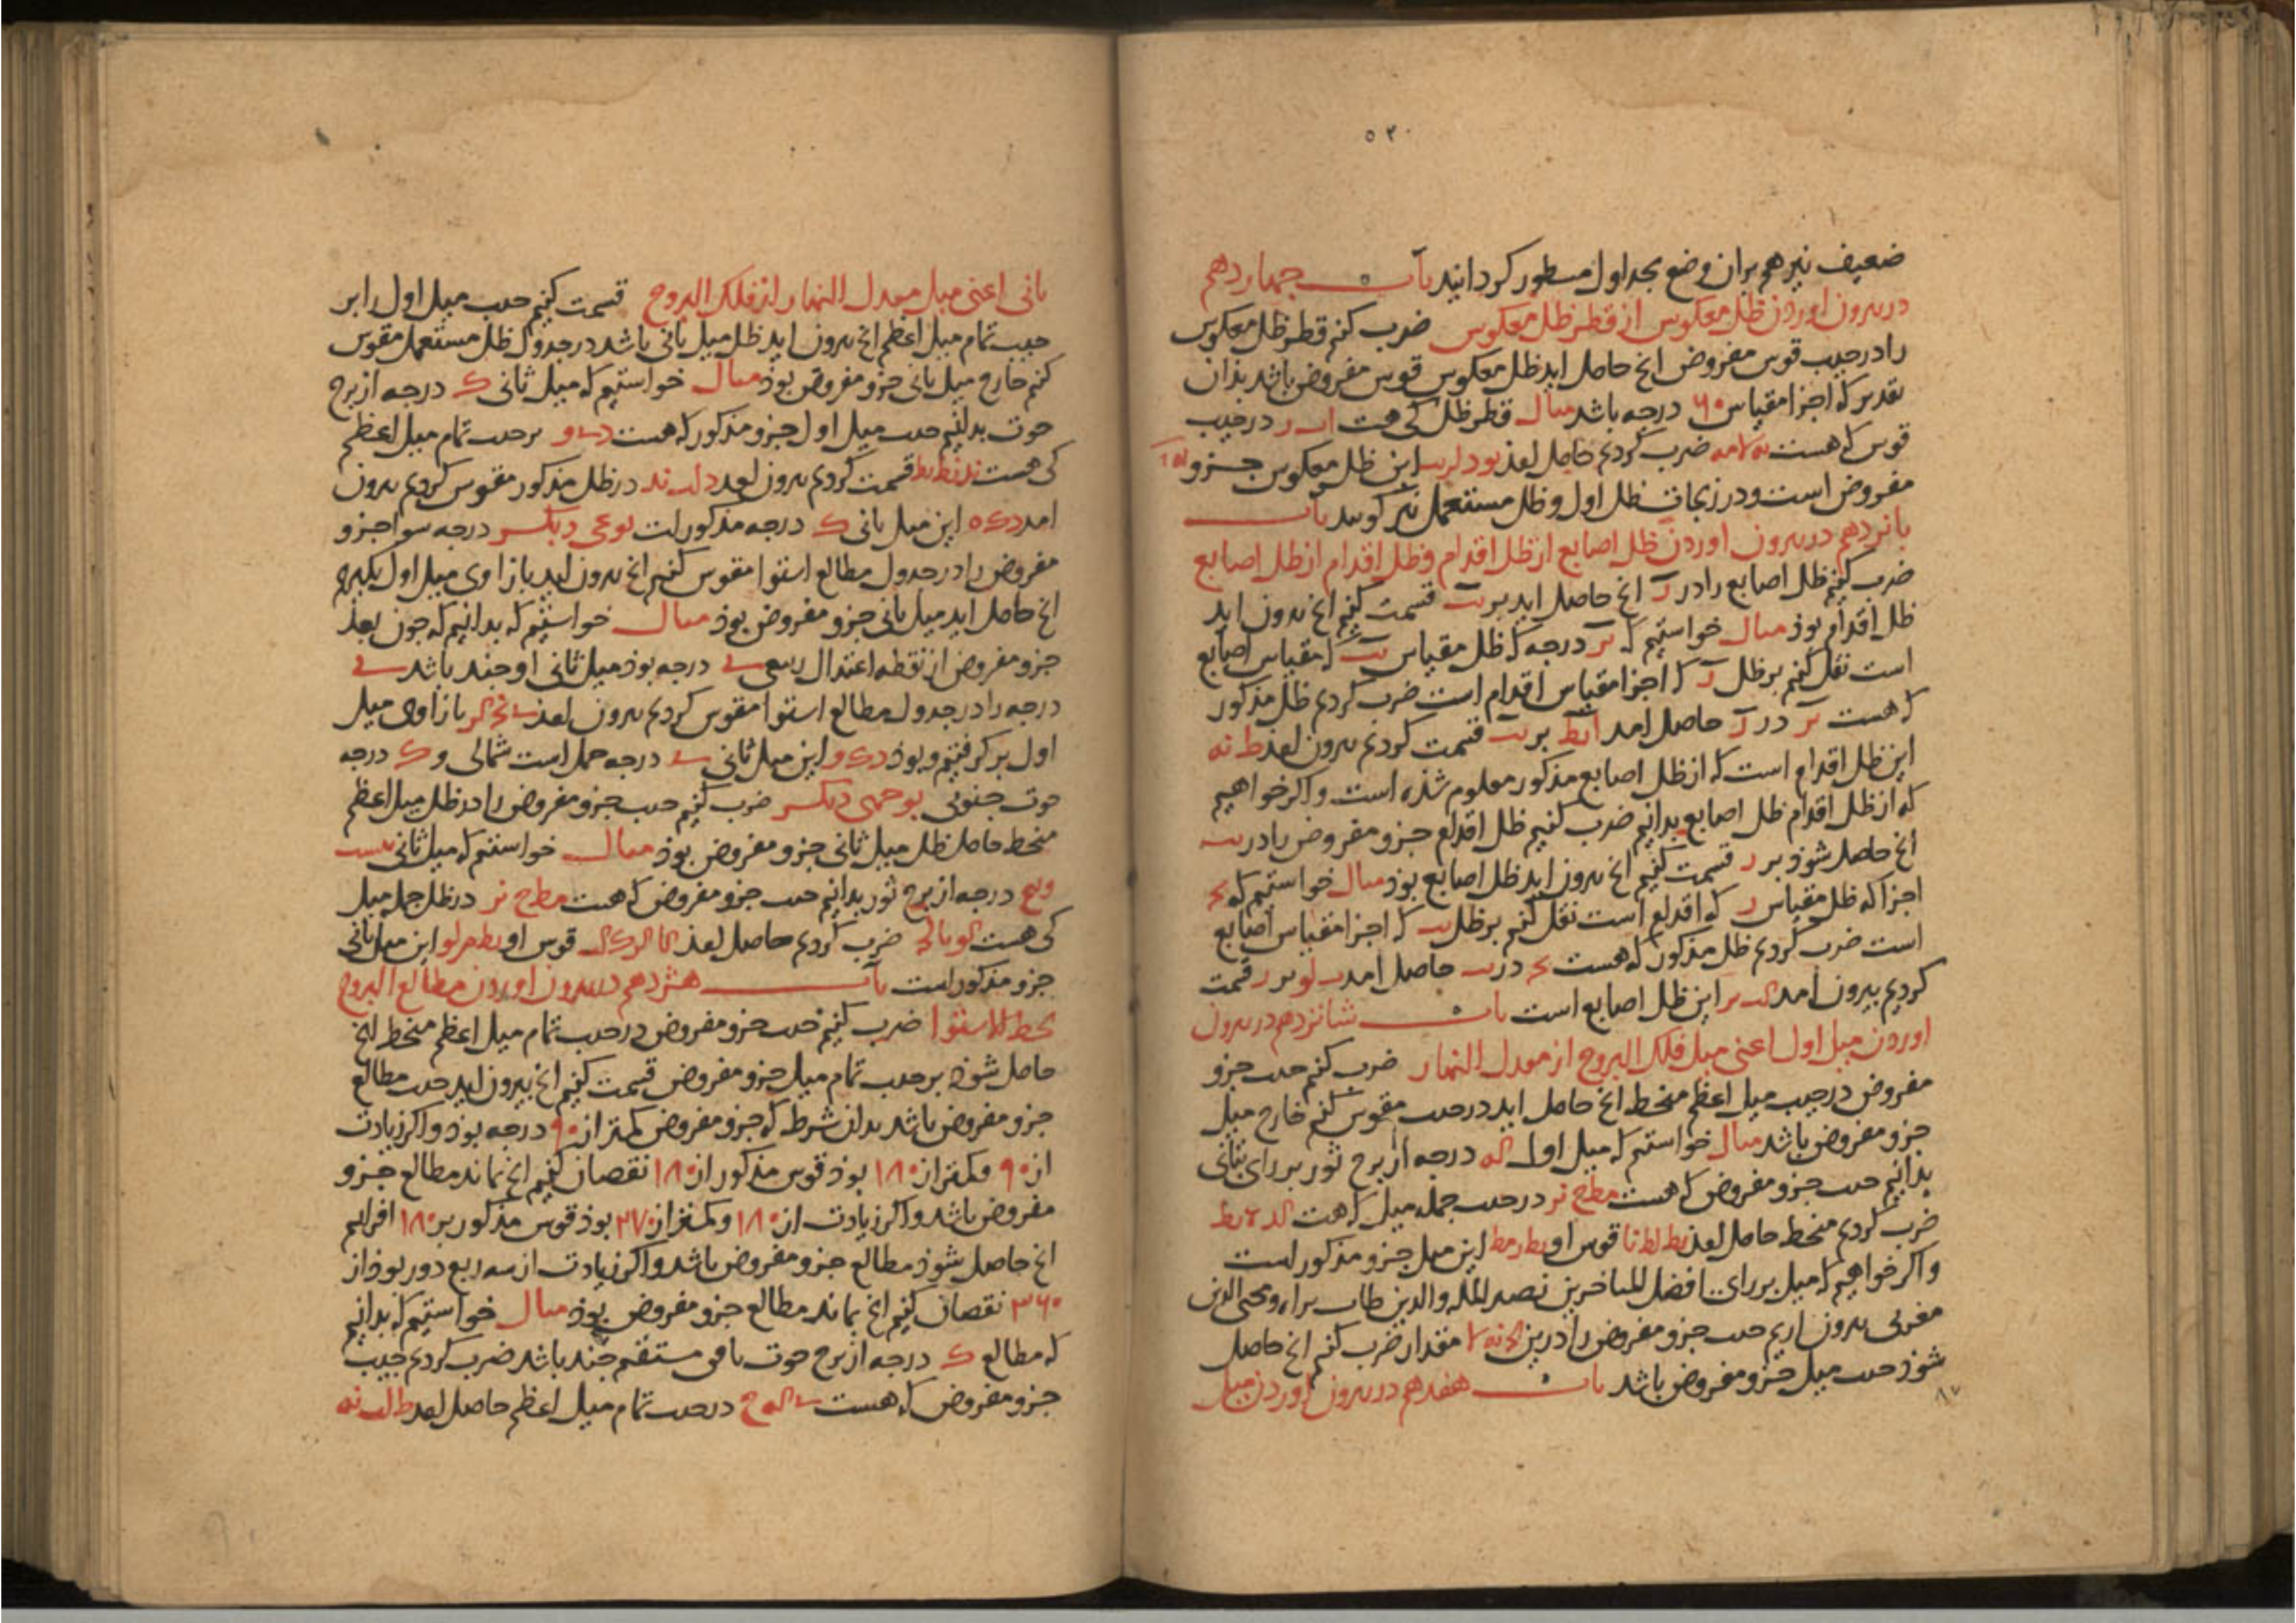 ۵۳۰
ضعیف نیز هم بران وضع بجداول مسطور کردانید باب چهاردهم
در بیرون اوردن ظل معکوس از قطر ظل معکوس ضرب کنم قطر ظل معکوس
را در جیب قوس مفروض انج حاصل اید ظل معکوس قوس مفروض باشد بذان
تقدیر که اجزا مقیاس ۶۰ درجه باشد مثال قطر ظل کی هست در جیب
قوس که هست ضرب کردیم حاصل لعذ این ظل معکوس جزو
مفروض است و در زیجات ظل اول و ظل مستعمل نیز کویند باب
بانزدهم در بیرون اوردن ظل اصابع از ظل اقدام و ظل اقدام از ظل اصابع
ضرب کنیم ظل اصابع را در ز انج حاصل اید بر یب قسمت کنیم انج بیرون اید
ظل اقدام بوذ مثال خواستیم که درجه که ظل مقیاس یب که مقیاس اصابع
است نقل کنیم بر ظل ز که اجزا مقیاس اقدام است ضرب کردیم ظل مذکور
که هست در ز حاصل امد بر یب قسمت کردیم بیرون لعذ ط نه
این ظل اقدام است که از ظل اصابع مذکور معلوم شذه است و اکر خواهیم
که از ظل اقدام ظل اصابع بدانیم ضرب کنیم ظل اقدام جزو مفروض را در یب
انج حاصل شوذ بر ز قسمت کنیم انج بیرون اید ظل اصابع بوذ مثال خواستیم که
اجزا که ظل مقیاس ز که اقدام است نقل کنیم بر ظل یب که اجزا مقیاس اصابع
است ضرب کردیم ظل مذکور که هست در یب حاصل امد بر ز قسمت
کردیم بیرون امد این ظل اصابع است باب شانزدهم در بیرون
اوردن میل اول اعنی میل فلک البروج از معدل النهار ضرب کنم جیب جزو
مفروض در جیب میل اعظم منحط انج حاصل اید در جیب مقوس کنم خارج میل
جزو مفروض باشد مثال خواستیم که میل اول که درجه از برج ثور بر رای بتانی
بدانیم جیب جزو مفروض که هست مط ح نر در جیب جمله میل که هست
ضرب کردیم منحط حاصل لعذ قوس او این میل جزو مذکور است
و اکر خواهیم که میل بر رای افضل المتاخرین نصیر المله والدین طاب ثراه و محیی الدین
مغربی بیرون اریم جیب جزو مفروض را درین مقدار ضرب کنم انج حاصل
شوذ جیب میل جزو مفروض باشد باب هفدهم در بیرون اوردن میل
۸۷
ثانی اعنی میل معدل النهار از فلک البروج قسمت کنیم جیب میل اول را بر
جیب تمام میل اعظم انج بیرون اید ظل میل ثانی باشد در جدول ظل مستعمل مقوس
کنم خارج میل ثانی جزو مفروض بوذ مثال خواستیم که میل ثانی ک درجه از برج
حوت بدانیم جیب میل اول جزو مذکور که هست بر جیب تمام میل اعظم
کی هست ند نط بط قسمت کردیم بیرون لعذ در ظل مذکور مقوس کردیم بیرون
امد این میل ثانی ک درجه مذکور است نوعی دیکر درجه سوا جزو
مفروض را در جدول مطالع استوا مقوس کنیم انج بیرون اید بازاوی میل اول بکیریم
انج حاصل اید میل ثانی جزو مفروض بوذ مثال خواستیم که بدانیم که جون بعذ
جزو مفروض از نقطه اعتدال ربیعی ی درجه بوذ میل ثانی او جند باشد ی
درجه را در جدول مطالع استوا مقوس کردیم بیرون لعذ بازاوی میل
اول بر کرفتیم و بوذ این میل ثانی ی درجه حمل است شمالی و ک درجه
حوت جنوبی نوعی دیکر ضرب کنیم جیب جزو مفروض را در ظل میل اعظم
منحط حاصل ظل میل ثانی جزو مفروض بوذ مثال خواستم که میل ثانی بیست
و پنج درجه از برج ثور بدانیم جیب جزو مفروض که هست مط ح نر در ظل جمله میل
کی هست ضرب کردیم حاصل لعذ قوس او این میل ثانی
جزو مذکور است باب هشزدهم در بیرون اوردن مطالع البروج
بخط الاستوا ضرب کنیم جیب جزو مفروض در جیب تمام میل اعظم منحط انج
حاصل شوذ بر جیب تمام میل جزو مفروض قسمت کنیم انج بیرون اید جیب مطالع
جزو مفروض باشد بدان شرط که جزو مفروض کمتر از ۹۰ درجه بوذ و اکر زیادت
از ۹۰ و کمتر از ۱۸۰ بوذ قوس مذکور از ۱۸۰ نقصان کنیم انج بماند مطالع جزو
مفروض باشد و اکر زیادت از ۱۸۰ و کمتر از ۲۷۰ بوذ قوس مذکور بر ۱۸۰ افزایم
انج حاصل شوذ مطالع جزو مفروض باشد و اکر زیادت از سه ربع دور بوذ از
۳۶۰ نقصان کنیم انج بماند مطالع جزو مفروض بوذ مثال خواستیم که بدانیم
که مطالع ک درجه از برج حوت بافق مستقیم جند باشد ضرب کردیم جیب
جزو مفروض که هست در جیب تمام میل اعظم حاصل لعذ